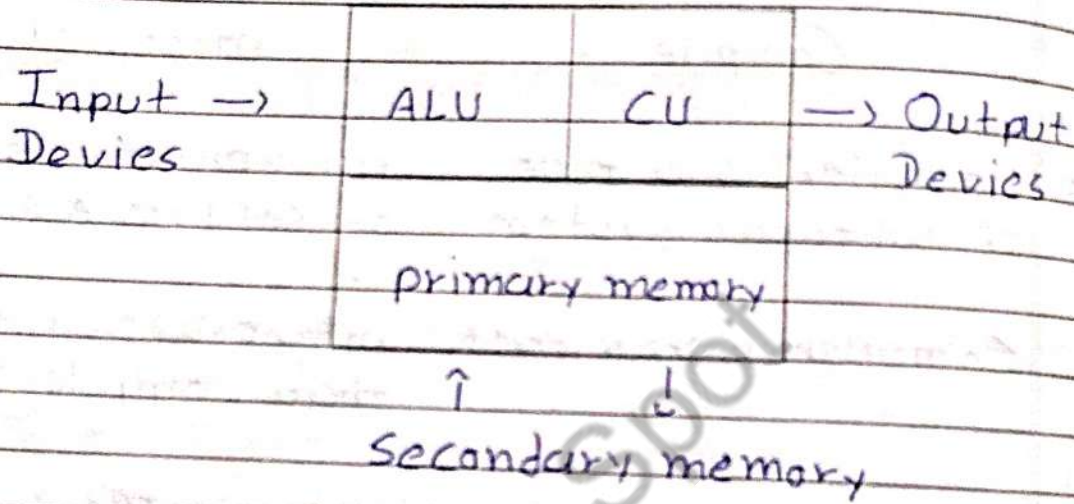 Input → ALU CU → Output
Devies Devics
primary memory
↑ ↓
Secondary memory
Spot